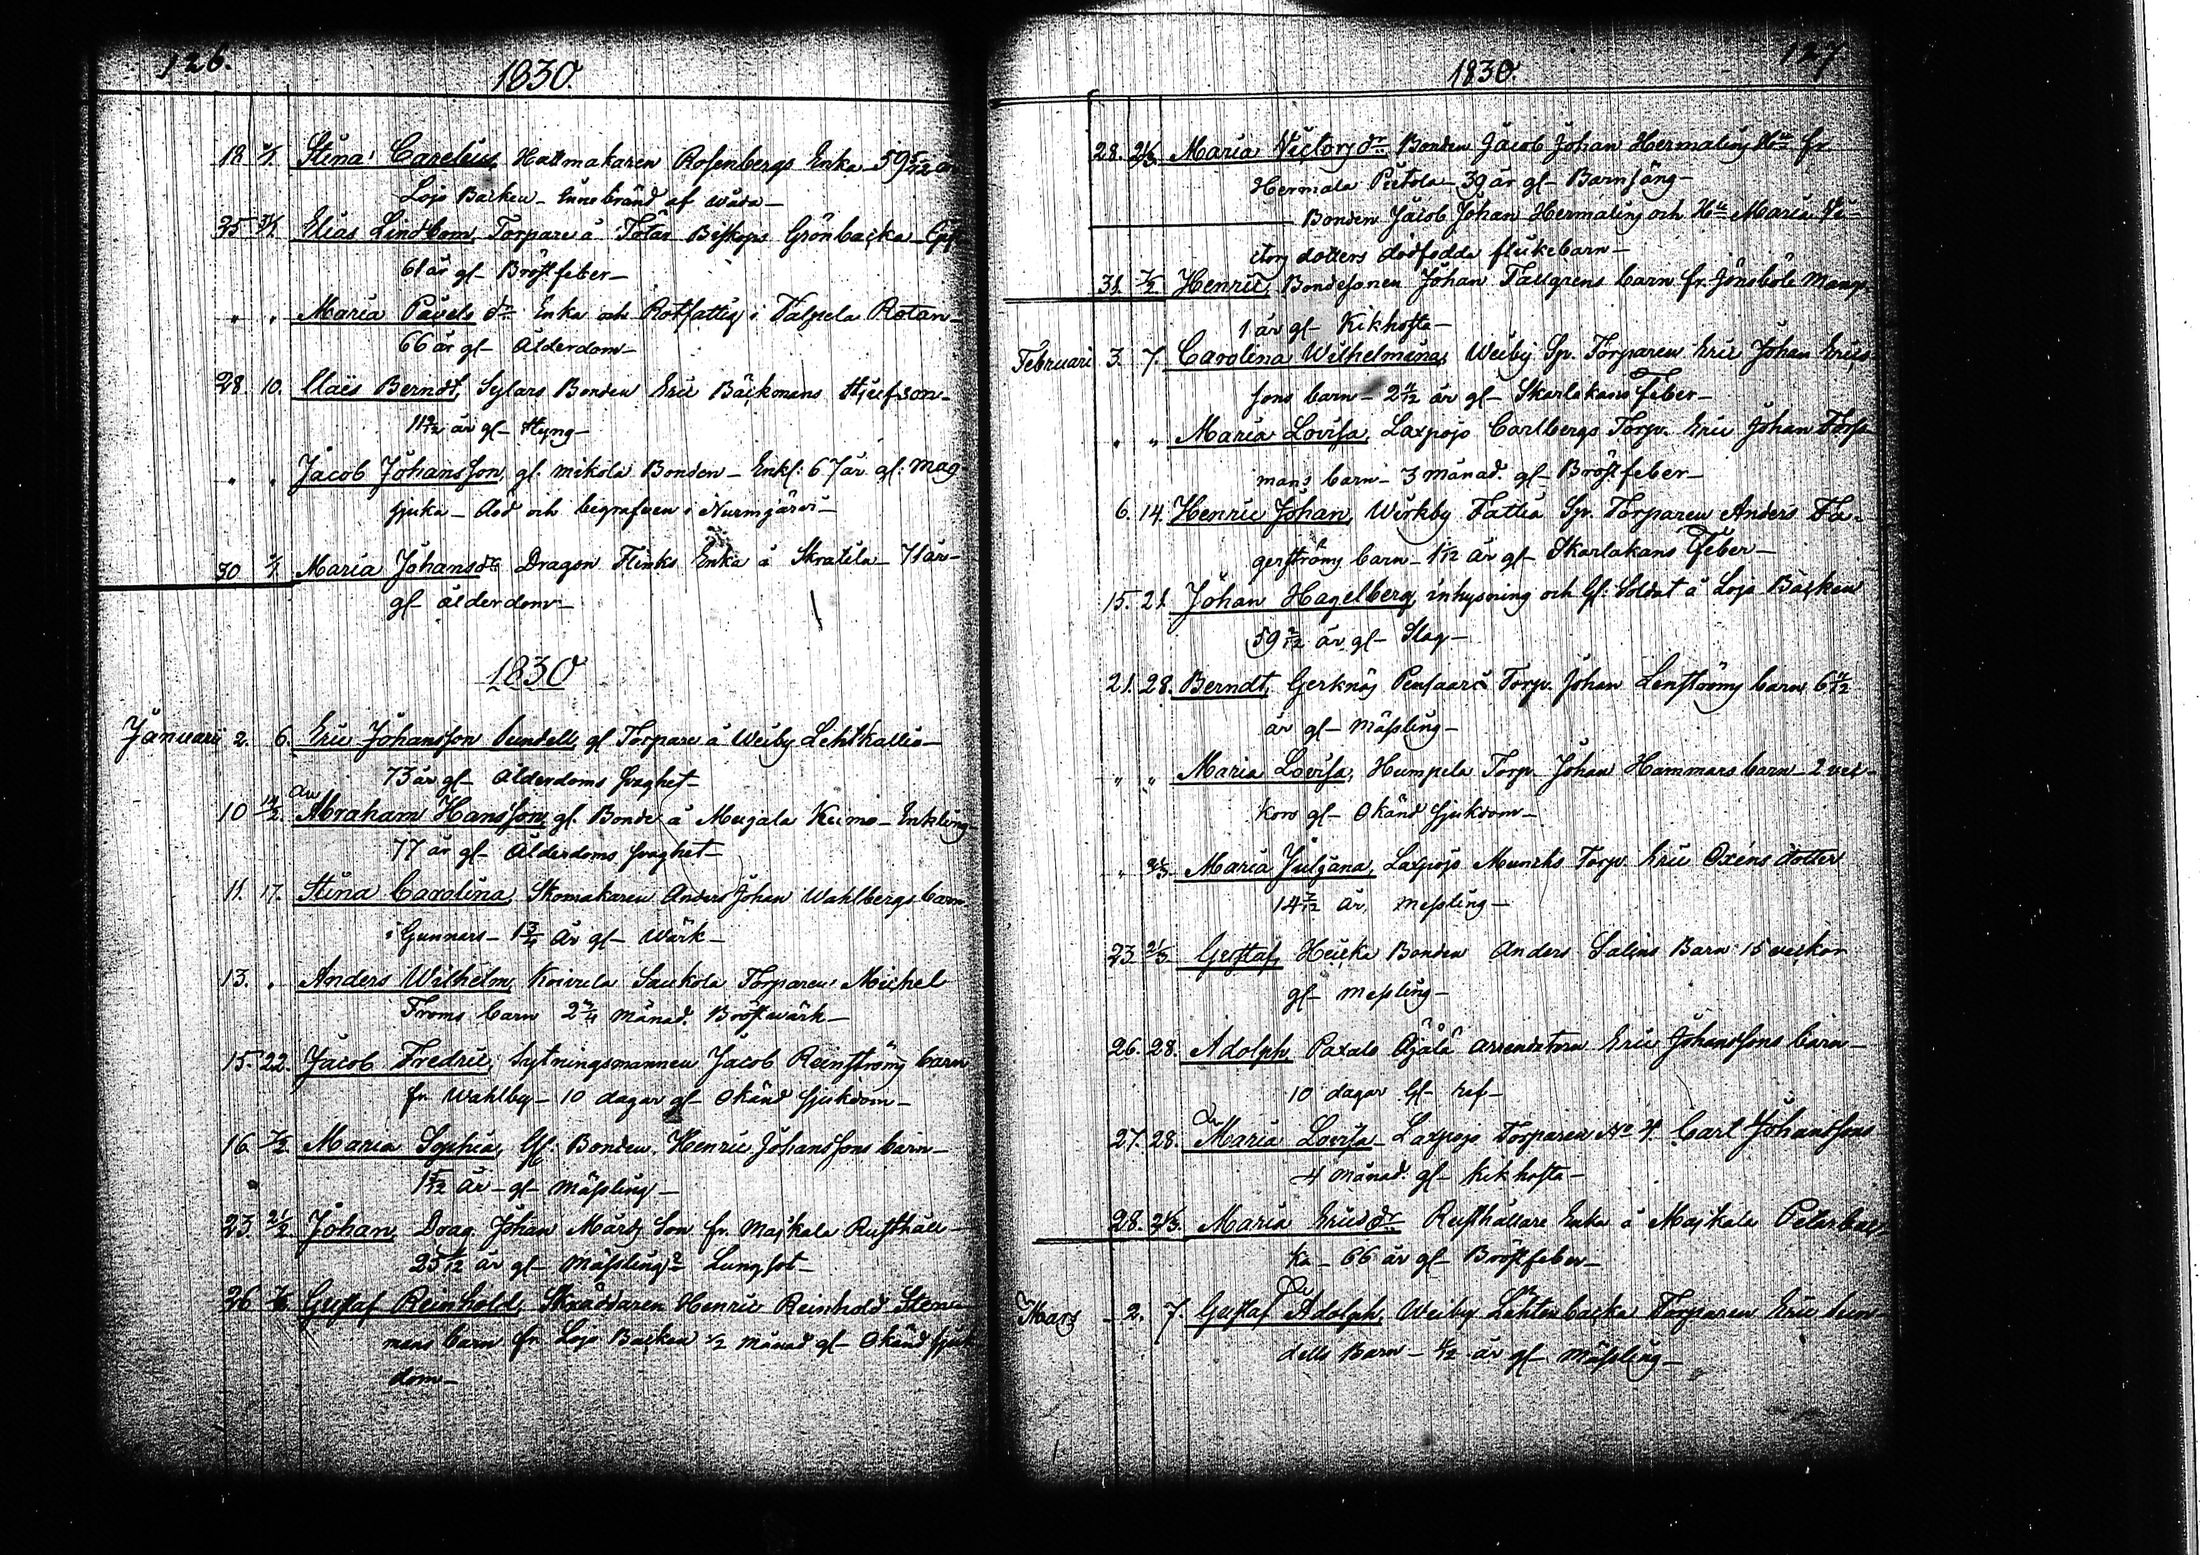 126.
1830.
18 3/1. Stina Carelius Hattmakaren Rosenbergs Enka 59 5/12 år
Lojo Backen - Innebränd af våda -
25 31/1. Elias Lindbom, Torpare å Tötar Biskops Grönbacka -
61 år gl - Bröstfeber -
" " Maria Pavels dr Enka och Rotfattig i Valpela Rotan -
66 år gl - Ålderdom -
28. 10. Claës Berndt, Sylars Bonden Eric Bäckmans Stjufson -
11 9/12 år gl - Styng -
" " Jacob Johansson, gl. mikola Bonden - Enkl: 67 år gl: Mag-
sjuka - död och begrafven i Nurmijärvi -
30 Maria Johansdr Dragon Flinks Enka å Skraktila - 71 år -
gl - ålderdom -
1830
Januarii 2. 6. Eric Johansson Sundell, gl Torpare å Weiby Lehtkallio -
73 år gl - Ålderdoms svaghet -
10 14/2. Abraham Hansson, gl. Bonde å Meijala Keimo - Enkling -
77 år gl - Ålderdoms svaghet -
11. 17. Stina Carolina, Skomakaren Anders Johan Wahlbergs barn
i Gunnars - 1 3/4 År gl - Wärk -
13. " Anders Wilhelm, Koivula Saukola Torparen Michel
Froms barn 2 3/4 månad. Bröstvärk -
15. 22. Jacob Fredric, Sytningsmannen Jacob Reinströms barn
fr. Wahlby - 10 dagar gl - Okänd sjukdom -
16. 7/2. Maria Sophia, Gl: Bonden Henric Johanssons barn -
1 5/12 År - gl - Mässling -
23. 21/2 Johan, Drag. Johan Märtz Son fr. Maikala Rusthåll -
25 5/12 år gl - Mässling? Lungsot -
26 Gustaf Reinhold, Skräddaren Henric Reinhold Stenn-
mans barn fr. Lojo Backen 1/2 månad gl - Okänd sjuk-
dom -
127
1830.
28. 21/3 Maria Victorsdr Bonden Jacob Johan Hermalins Hu fr
Hermala Pietola - 39 år gl - Barnsäng -
Bonden Jacob Johan Hermalins och Hu Maria Vi-
ctors dotters dödfödda flickebarn -
31. 7/2 Henric, Bondesonen Johan Tallgrens barn fr. Jönsböle Mangs
1 år gl - Kikhosta -
Februari 3. 7. Carolina Wilhelmina, Weiby Sp. Torparen Eric Johan Erics-
sons barn - 2 4/12 år gl - Skarlakans Feber -
" " Maria Lovisa, Laxpojo Carlbergs Torp. Eric Johan Fors-
mans barn - 3 månad. gl - Bröstfeber -
6. 14. Henric Johan, Wirkby Tattia Sp. Torparen Anders Fa-
gerströms barn - 1/12 år gl - Skarlakans Feber -
15. 21. Johan Hagelberg, inhysning och Gl: Soldat å Lojo Backen
59 2/12 år gl - Slag -
21. 28. Berndt, Gerknäs Pensaari Torp. Johan Lenströms barn 6 4/12
år gl - Mässling -
" " Maria Lovisa, Humpela Torp. Johan Hammars barn - 2 vec-
kors gl - Okänd sjukdom -
" Maria Juliana, Laxpojo Muncks Torp. Eric Oxens dotter
14 7/12 år, mesling -
23. 21/3 Gustaf, Heicka Bonden Anders Salins Barn 15 veckor
gl - Messling -
26. 28. Adolph, Paxalo Ojala Arrendatorn Eric Johanssons barn -
10 dagar Gl - ref -
27. 28. Maria Lovisa - Laxpojo Torparen No 4. Carl Johanssons
4 månad. gl - Kikhosta -
28. 21/3. Maria Ericsdr Rusthållare Enka å Maikala Peterbac-
ka - 66 år gl - Bröstfeber -
Mars - 2. 7. Gustaf Adolph, Weiby Lehtobacka Torparen Eric Sun-
dells Barn - år gl - Mässling -